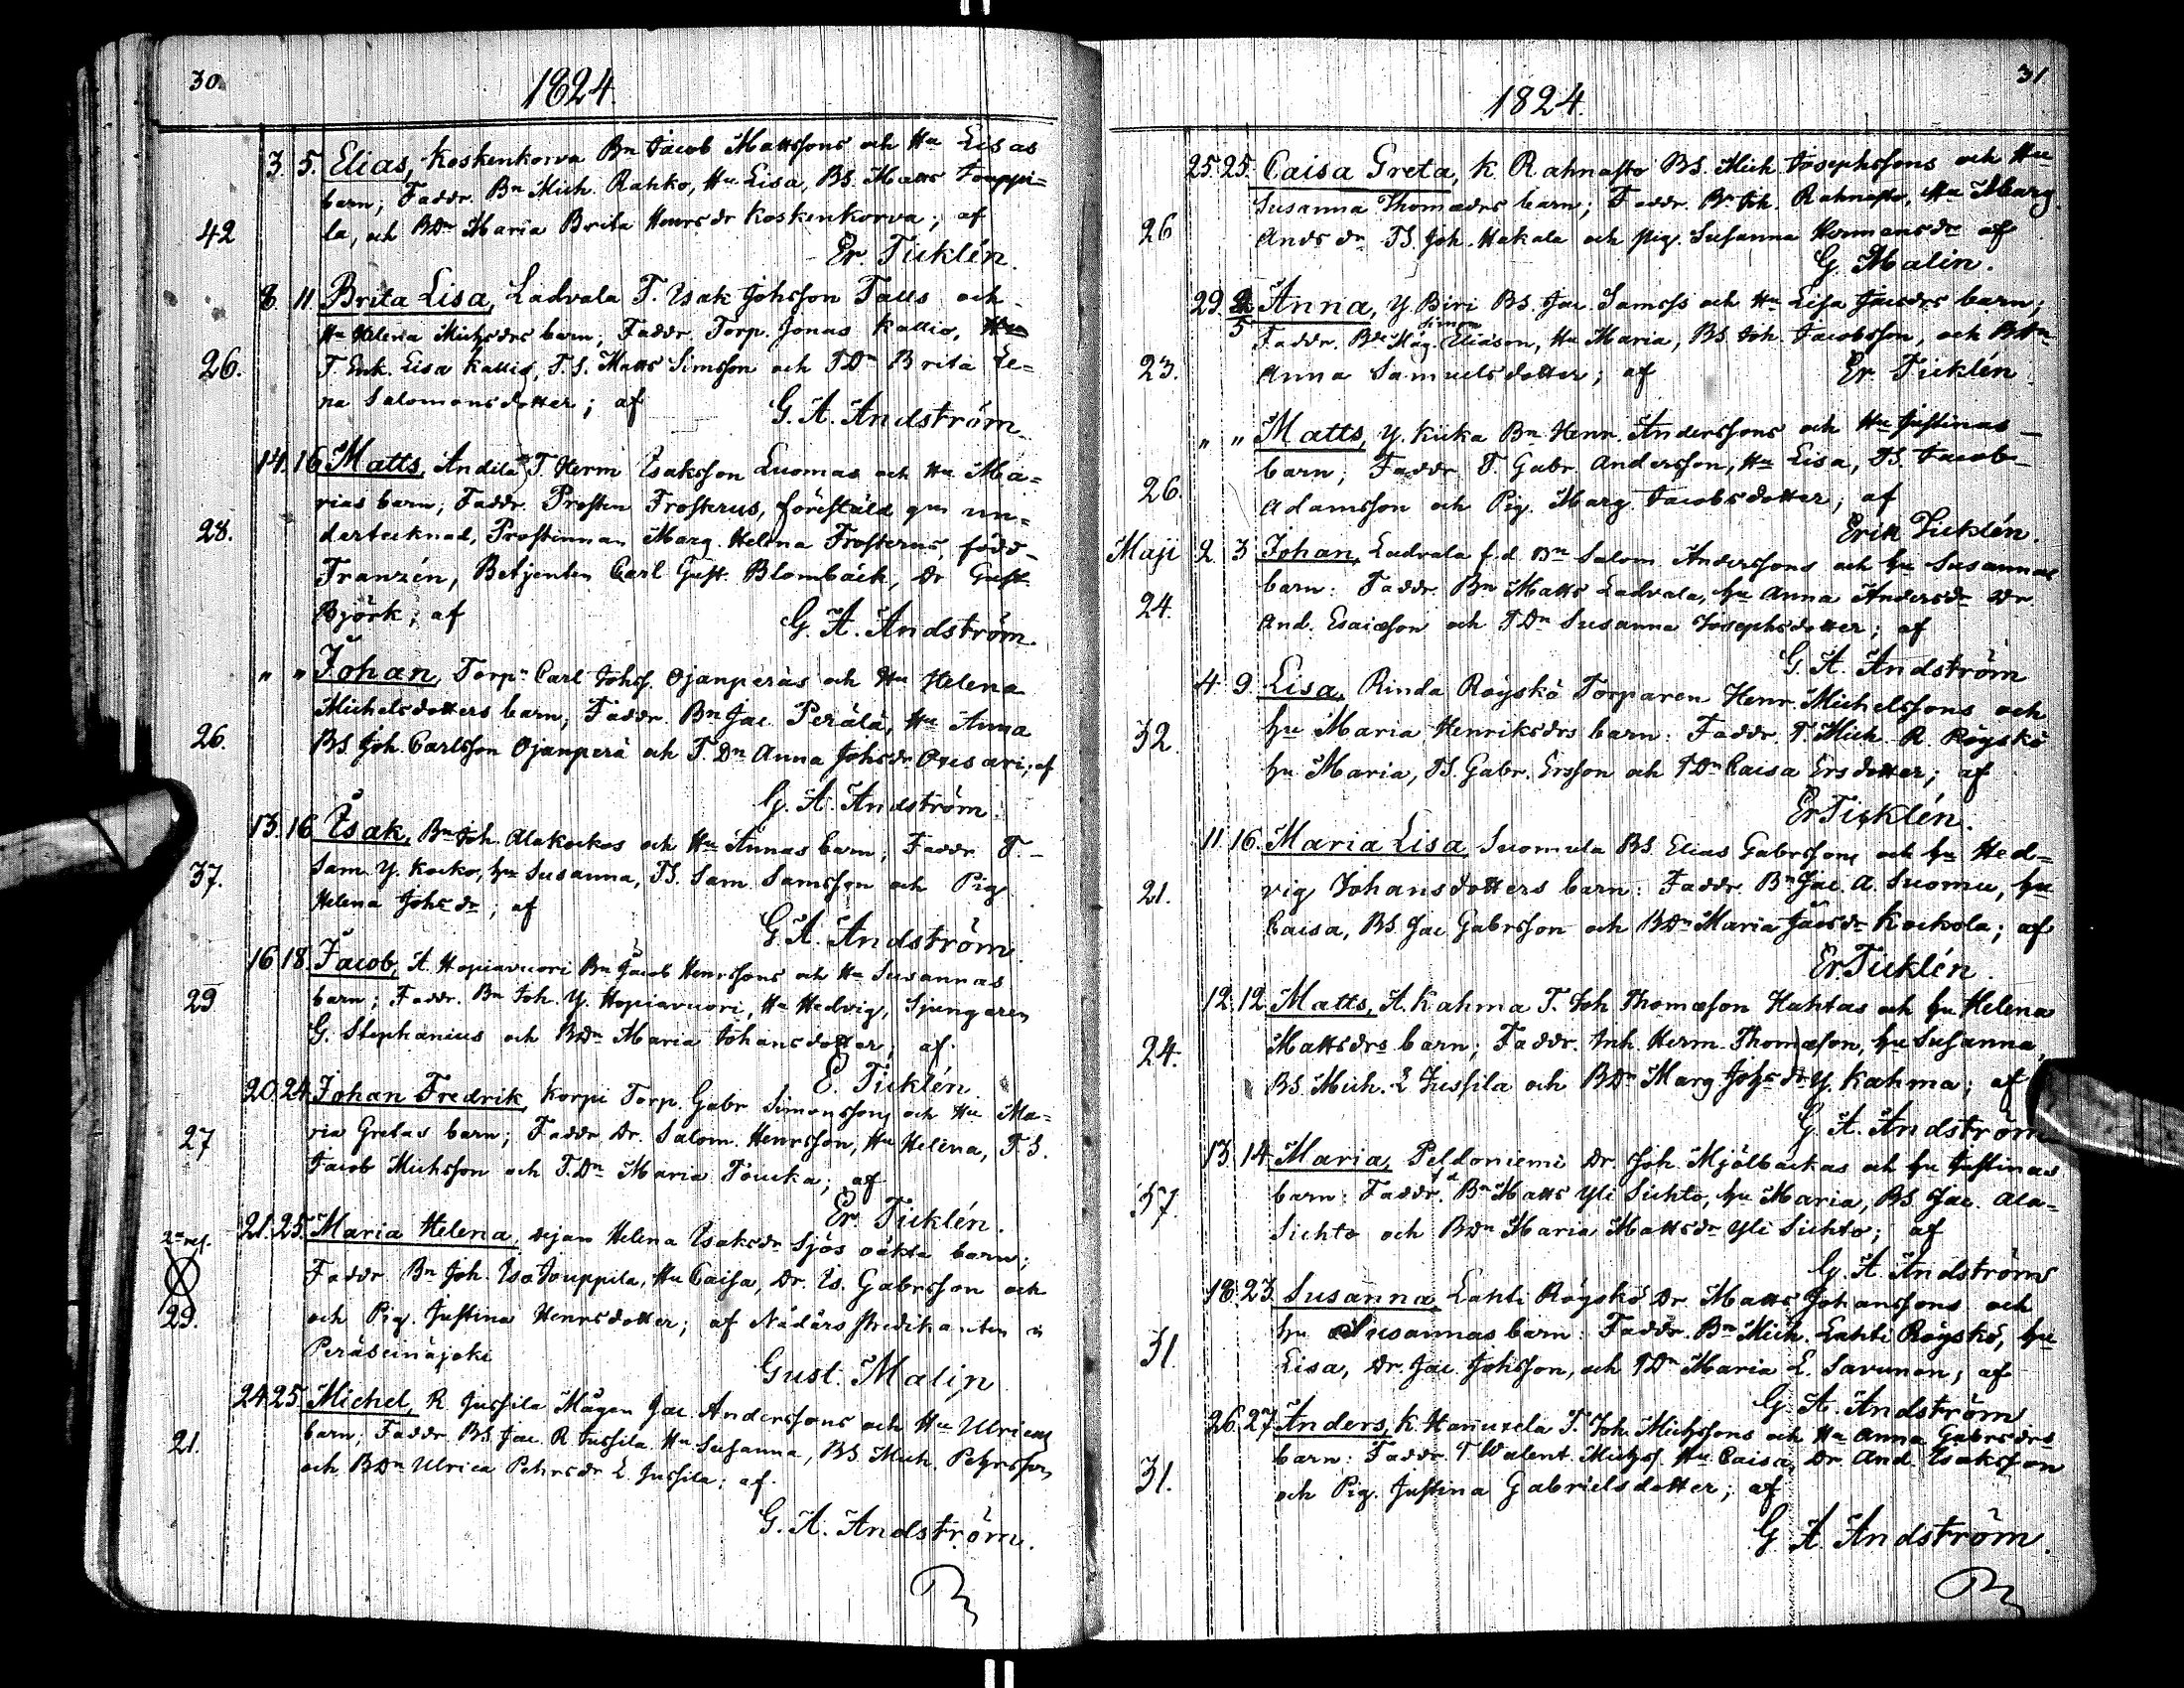 30.
1824.
3. 5. Elias, Koskenkorva Bn Jacob Mattssons och Hu Lisas
barn; Faddr. Bn Mich. Rahko, Hu Lisa, BS. Matts Jouppi=
42 la, och BDn Maria Brita Henrsdr Koskenkorva; af
Er. Ticklén.
8. 11. Brita Lisa, Ladvala T. Isak Johsson Talls och
Hu Helena Michsdrs barn; Faddr. Torp. Jonas Kallio,
26. T. Enk. Lisa Kallio, T.S. Matts Simsson och TDn Brita Le=
na Salomonsdotter; af
G. A. Andström.
14. 16. Matts, Andila T. Herm Isaksson Luomas och Hu Ma=
rias barn; Faddr. Prosten Frosterus, föreställd gm un=
28. dertecknad, Prostinnan Marg. Helena Frosterus, född
Franzén, Betjenten Carl Gust. Blombäck, Dr Gust.
Björk; af
G. A. Andström.
" " Johan, Torpn Carl Johss. Ojanperäs och Hu Helena
Michelsdotters barn; Faddr. Bn Jac. Perälä, Hu Anna
26. BS. Joh. Carlsson Ojanperä och T.Dn Anna Johsdr; af
G. A. Andström.
15. 16. Isak, Bn Joh. Alakockos och Hu Annas barn; Faddr. T.
37. Sam. Y. Kocko, hu Susanna, TS. Sam. Samsson och Pig.
Helena Johsdr; af
G. A. Andström.
16 18. Jacob, A. Hopiavuori Bn Jacob Henrssons och Hu Susannas
29 barn; Faddr. Bn Joh. Y. Hopiavuori, Hu Hedvig, Sjungaren
G. Stephanius och BDn Maria Johansdotter; af
E. Ticklén.
20. 24. Johan Fredrik, Korpi Torp. Gabr. Simonssons och Hu Ma=
27 ria Gretas barn; Faddr. Dr. Salom. Henrsson, Hu Helena, T.S.
Jacob Michsson och T.Dn Maria; af
Er. Ticklén.
21. 25. Maria Helena, dejan Helena Isaksdr Sjös oäkta barn;
Faddr. Bn Joh. Iso Jouppila, Hu Caisa, Dr. Is. Gabrsson och
29. och Pig. Justina Henrsdotter; af Nådårs Predikanten i
Peräseinäjoki
Gust. Malin
24 25. Michel, R. Jussila Mågen Jac. Anderssons och Hu Ulricas
21. barn; Faddr. BS. Jac. R. Jussila, Hu Susanna, BS. Mich. Pehrsson,
och BDn Ulrica Pehrsdr L. Jussila; af
G. A. Andström.
31
1824.
25. 25. Caisa Greta, K. Rahnasto BS. Mich. Josephssons och Hu
Susanna Thomædrs barn; Faddr. Bn Joh. Rahnasto, Hu Marg.
26 Andsdr TS. Joh. Hakala och pig. Susanna Hermansdr af
G. Malin.
29. 2/5 Anna, Y. Biri BS. Jac. Samss och Hu Lisa Jacsdrs barn;
Simon
Faddr. Bn Måg. Eliasson, Hu Maria, BS. Joh. Jacobsson, och BDn
23. Anna Samuelsdotter; af Er. Ticklén
" " Matts, Y. Kuka Bn Henr. Anderssons och Hu Justinas
barn; Faddr. T. Gabr. Andersson, Hu Lisa, TS. Jacob
26. Adamsson och Pig. Marg. Jacobsdotter; af
Erik Ticklén.
Maji 2 3 Johan, Ladvala f.d. Bn Salom. Anderssons och hu Susannas
24. barn: Faddr. Bn Matts Ladvala, hu Anna Andersdr Dr.
And. Esaiæson och TDn Susanna Josephsdotter; af
G. A. Andström
4. 9. Lisa, Rinda Röyskö Torparen Henr. Michelssons och
32. hu Maria Henriksdrs barn: Faddr. T. Mich. R. Röyskö
hu Maria, TS. Gabr. Ersson och TDn Caisa Ersdotter; af
Er Ticklén.
11. 16. Maria Lisa Suomula BS. Elias Gabrssons och hu Hed=
21. vig Johansdotters barn: Faddr. Bn Jac. A. Suomu, hu
Caisa, BS. Jac Gabrsson och BDn Maria Jacsdr Kockola; af
Er. Ticklén.
12. 12. Matts, A. Kahma T. Joh Thomæson Hahtas och hu Helena
24. Mattsdrs barn; Faddr. Inh. Herm. Thomæson, hu Susanna,
BS. Mich. L Jussila och BDn Marg Johsdr Y. Kahma; af
G. A. Andström
13. 14. Maria, Peldoniemi Dr. Joh. Mjölbackas och hu Justinas
37. barn: Faddr. Bn Matts Yli Sichto, hu Maria, BS Jac. Ala-
Sichto och BDn Maria Mattsdr Yli Sichto; af
G. A. Andström
18. 23. Susanna, Lahti Röyskö Dr. Matts Johanssons och
31. hu Susannas barn: Faddr. Bn Mich. Lahti Röyskö, hu
Lisa, Dr. Jac. Johsson, och TDn Maria L. Savunen; af
G. A. Andström
26. 27. Anders, K. Hanuxela T. Joh. Michssons och Hu Anna Gabrsdrs
barn: Faddr. T Walent. Michss. Hu Caisa, Dr. And. Isaksson
31. och Pig. Justina Gabrielsdotter; af
G. A. Andström.